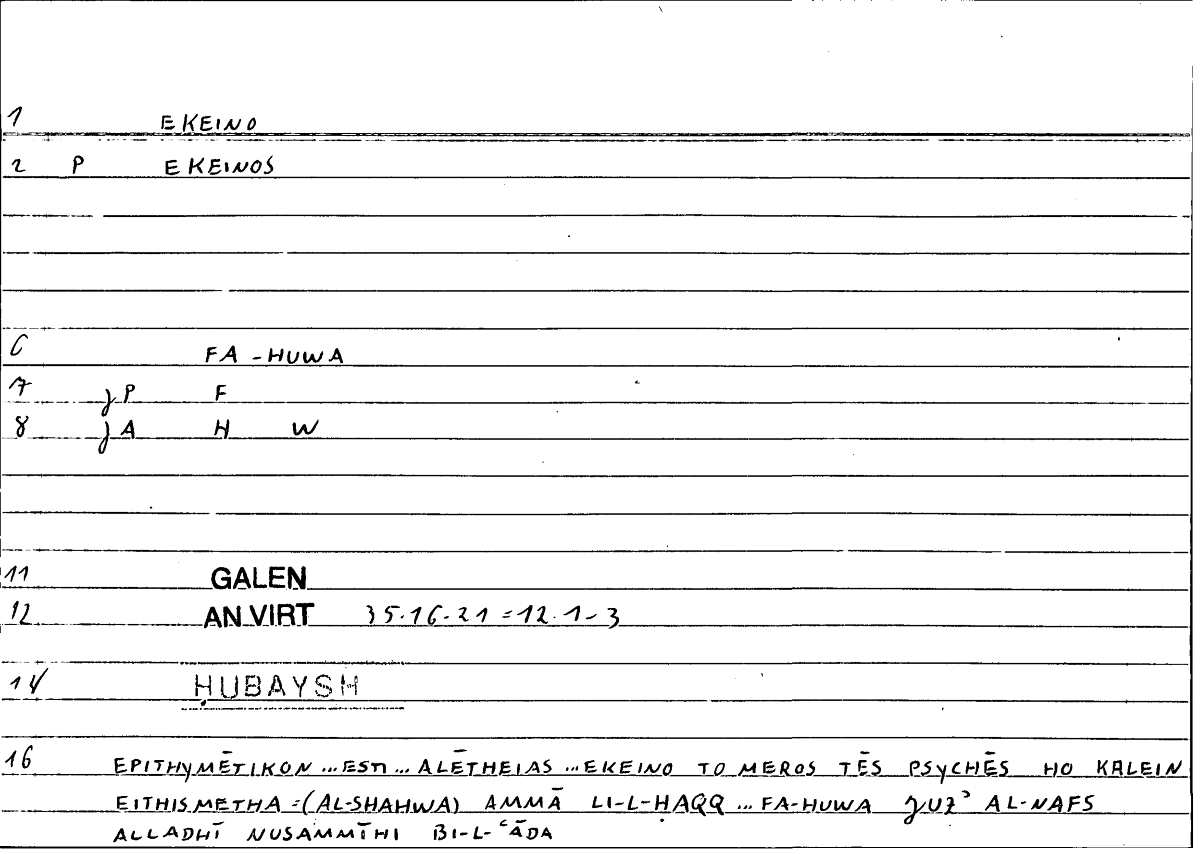 1 EKEINO
2 P EKEINOS
6 FA-HUWA
7 JP F
8 JA H W
11 GALEN
12 AN VIRT 35.16-21=12.1-3
14 ḤUBAYSH
16 EPITHYMĒTIKON...ESTI...ALĒTHEIAS...EKEINO TO MEROS TĒS PSYCHĒS HO KALEIN
EITHISMETHA=(AL-SHAHWA) AMMĀ LI-L-ḤAQQ...FA-HUWA JUZʾ AL-NAFS
ALLADHĪ NUSAMMĪHI BI-L-ʿĀDA